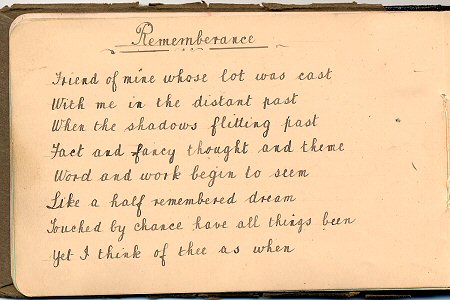 Rememberance
Friend of mine whose lot was cast
With me in the distant past
When the shadows flitting past
Fact and fancy thought and theme
Word and work begin to seem
Like a half remembered dream
Touched by chance have all things been
Yet I think of thee as when